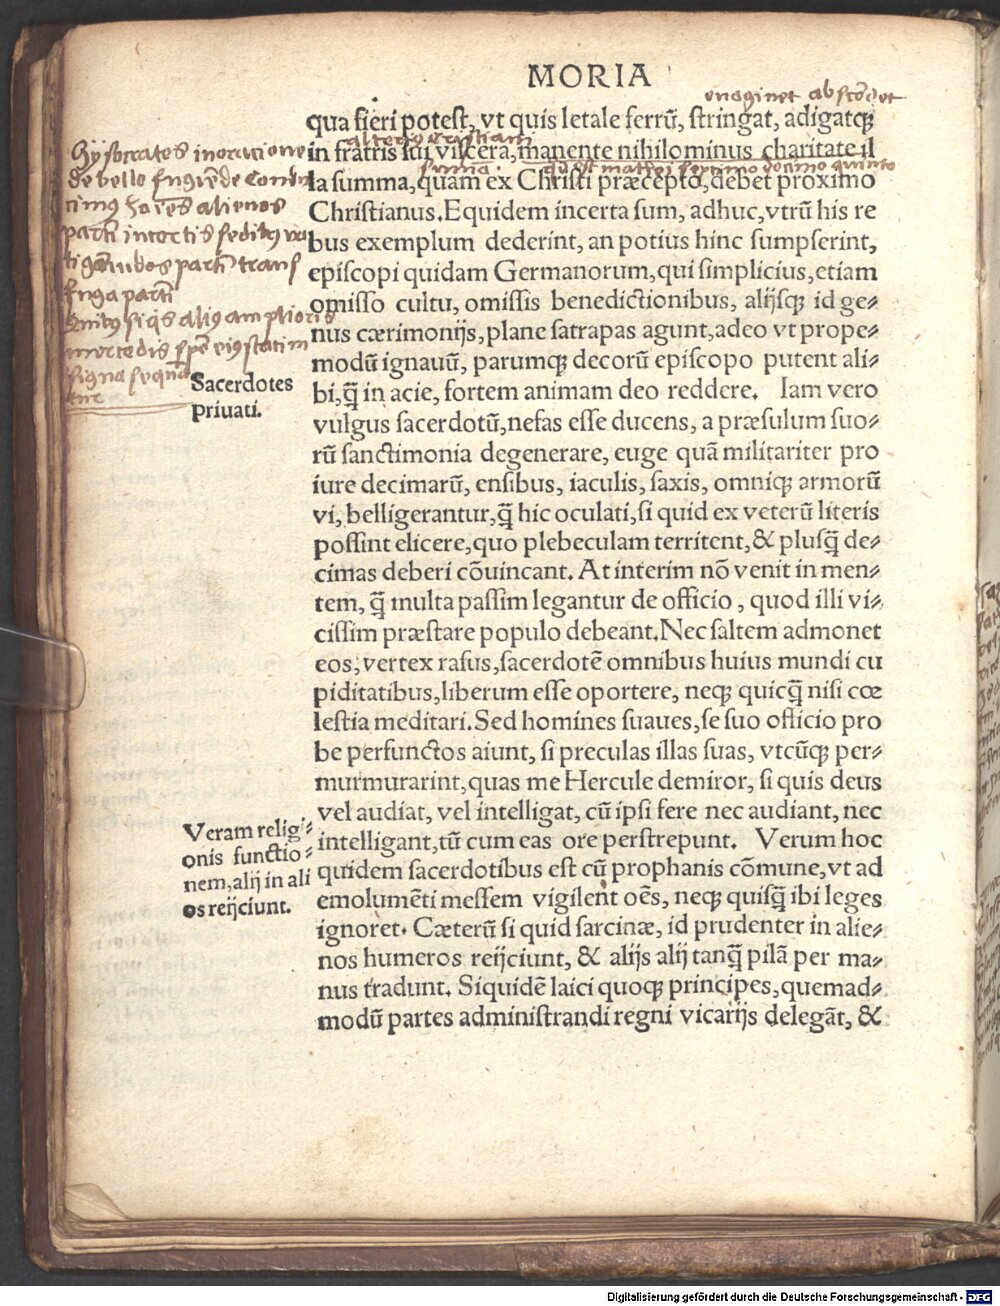 MORIA
qua fieri potest, vt quis letale ferrū, stringat, adigatqꝫ
in fratris sui viscera, manente nihilominus charitate il
la summa, quam ex Christi præcepto, debet proximo
Christianus. Equidem incerta sum, adhuc, vtrū his re
bus exemplum dederint, an potius hinc sumpserint,
episcopi quidam Germanorum, qui simplicius, etiam
omisso cultu, omissis benedictionibus, alijsqꝫ id ge⸗
nus cærimonijs, plane satrapas agunt, adeo vt prope⸗
modū ignauū, parumqꝫ decorū episcopo putent ali⸗
bi, q̄ in acie, fortem animam deo reddere. Iam vero
vulgus sacerdotū, nefas esse ducens, a præsulum suo⸗
rū sanctimonia degenerare, euge quā militariter pro
iure decimarū, ensibus, iaculis, saxis, omniqꝫ armorū
vi, belligerantur, q̄ hic oculati, si quid ex veterū literis
possint elicere, quo plebeculam territent, & plusq̄ de⸗
cimas deberi cōuincant. At interim nō venit in men⸗
tem, q̄ multa passim legantur de officio, quod illi vi⸗
cissim præstare populo debeant. Nec saltem admonet
eos, vertex rasus, sacerdotē omnibus huius mundi cu
piditatibus, liberum esse oportere, neqꝫ quicq̄ nisi cœ
lestia meditari. Sed homines suaues, se suo officio pro
be perfunctos aiunt, si preculas illas suas, vtcūqꝫ per⸗
murmurarint, quas me Hercule demiror, si quis deus
vel audiat, vel intelligat, cū ipsi fere nec audiant, nec
intelligant, tū cum eas ore perstrepunt. Verum hoc
quidem sacerdotibus est cū prophanis cōmune, vt ad
emolumēti messem vigilent oēs, neqꝫ quisq̄ ibi leges
ignoret. Cæterū si quid sarcinæ, id prudenter in alie⸗
nos humeros reijciunt, & alijs alij tanq̄ pilā per ma⸗
nus tradunt. Siquidē laici quoqꝫ principes, quemad⸗
modū partes administrandi regni vicarijs delegāt, &
Sacerdotes
priuati.
Veram religi⸗
onis functio⸗
nem, alij in ali
os reijciunt.
de bello
alienos
parti
fuga parti
mercedis
signa
Digitalisierung gefördert durch die Deutsche Forschungsgemeinschaft - DFG